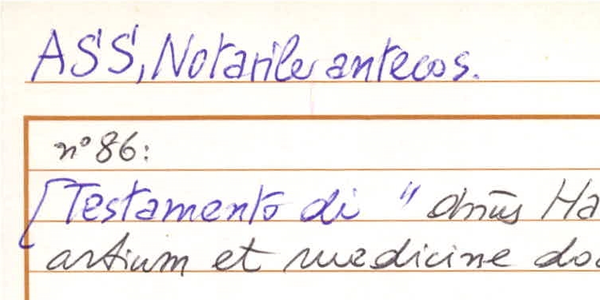 ASS, Notarile antecos.
n° 86:
[Testamento di " dnūs Ha
artium et medicine do